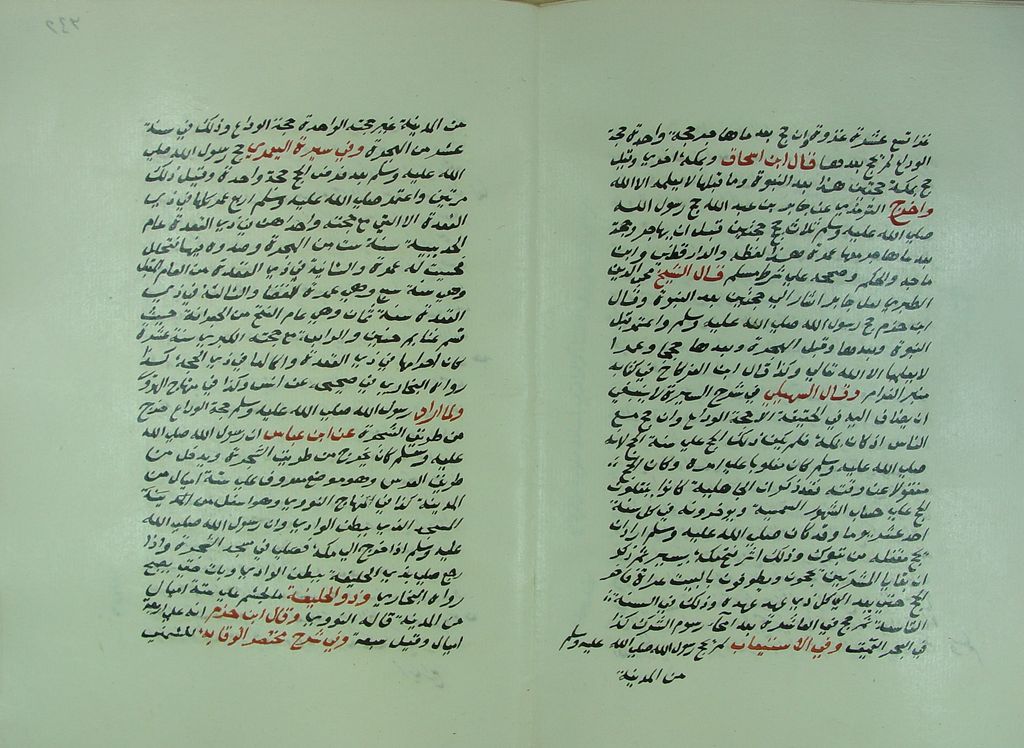 غزا تسع عشرة غزوة وان حج بعد ما هاجر حجة واحدة حجة
الوداع لم يحج بعدها قال ابن اسحاق وبمكة اخرى وقيل
حج بمكة حجتين هذا بعد النبوة وما قبلها لا يعلمه الا الله
واخرج الترمذي عن جابر بن عبد الله حج رسول الله
صلى الله عليه وسلم ثلاث حج حجتين قبل ان يهاجر وحجة
بعد ما هاجر معها عمرة هذا لفظه والدارقطني وابن
ماجه والحاكم وصححه على شرط مسلم قال الشيخ محي الدين
الطبري لعل جابر اشار الى حجتين بعد النبوة وقال
ابن حزم حج رسول الله صلى الله عليه وسلم واعتمر قبل
النبوة وبعدها وقبل الهجرة وبعدها حججا وعمرا
لا يعلمها الا الله تعالى وكذا قال ابن الفرج في كتابه
مثير الغرام وقال السهيلي في شرح السيرة لا ينبغي
ان يضاف اليه في الحقيقة الا حجة الوداع وان حج مع
الناس اذ كان بمكة فلم يكن ذلك الحج على سنة الحج لانه
صلى الله عليه وسلم كان مغلوبا على امره وكان الحج
منقولا عن وقته فقد ذكر ان اهل الجاهلية كانوا ينقلون
الحج على حساب الشهور الشمسية ويؤخرونه في كل سنة
احد عشر يوما وقد كان صلى الله عليه وسلم اراد ان
يحج مقفله من تبوك وذلك اثر فتح مكة بيسير ثم ذكر
ان بقايا المشركين يحجون ويطوفون بالبيت عراة فاخر
الحج حتى نبذ الى كل ذي عهد عهده وذلك في السنة
التاسعة ثم حج في العاشرة بعد امحاء رسوم الشرك كذا
في البحر العميق وفي الاستيعاب لم يحج رسول الله صلى الله عليه وسلم
من المدينة
من المدينة غير حجته الواحدة حجة الوداع وذلك في سنة
عشر من الهجرة وفي سيرة اليعمري حج رسول الله صلى
الله عليه وسلم بعد فرض الحج حجة واحدة وقبل ذلك
مرتين واعتمر صلى الله عليه وسلم اربع عمر كلها في ذي
القعدة الا التي مع حجته واحداهن في ذي القعدة عام
الحديبية سنة ست من الهجرة وصدوه فيها فتحلل
فحسبت له عمرة والثانية في ذي القعدة من العام المقبل
وهي سنة سبع وهي عمرة القضا والثالثة في ذي
القعدة سنة ثمان وهي عام الفتح من الجعرانة حيث
قسم غنايم حنين والرابعة مع حجته الكبرى سنة عشرة
كان احرامها في ذي القعدة واعمالها في ذي الحجة كذا
رواه البخاري في صحيحه عن انس وكذا في منهاج النووي
ولما اراد رسول الله صلى الله عليه وسلم حجة الوداع خرج
من طريق الشجرة عن ابن عباس ان رسول الله صلى الله
عليه وسلم كان يخرج من طريق الشجرة ويدخل من
طريق المعرس وهو موضع معروف على ستة اميال من
المدينة كذا في المنهاج النووي وهو اسفل من
المسجد الذي ببطن الوادي وان رسول الله صلى الله
عليه وسلم اذا خرج الى مكة فصلى في مسجد الشجرة واذا
رجع صلى بذي الحليفة ببطن الوادي وبات حتى يصبح
رواه البخاري وذو الحليفة على ستة اميال
من المدينة قاله النووي وقال ابن حزم انه على اربعة
اميال وقيل سبعة وفي شرح مختصر الوقاية للشمني